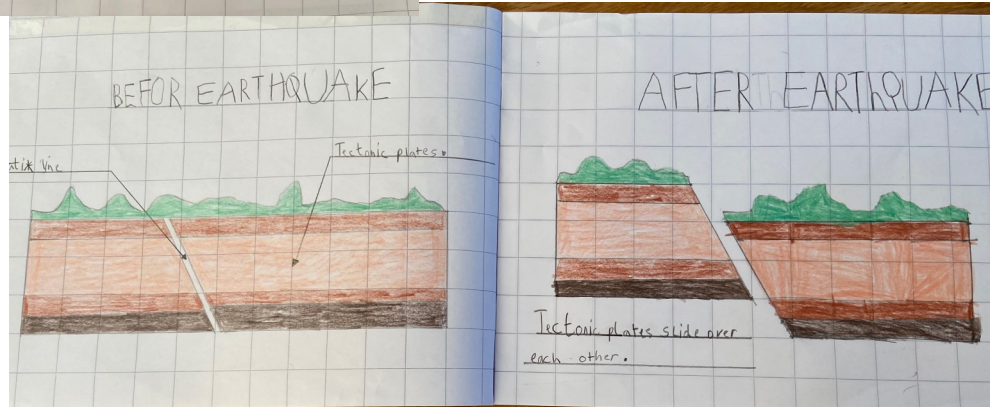 BEFOR EARTHQUAKE
Tectonic plates.
AFTER EARThQUAKE
Tectonic plates slide over
each other.